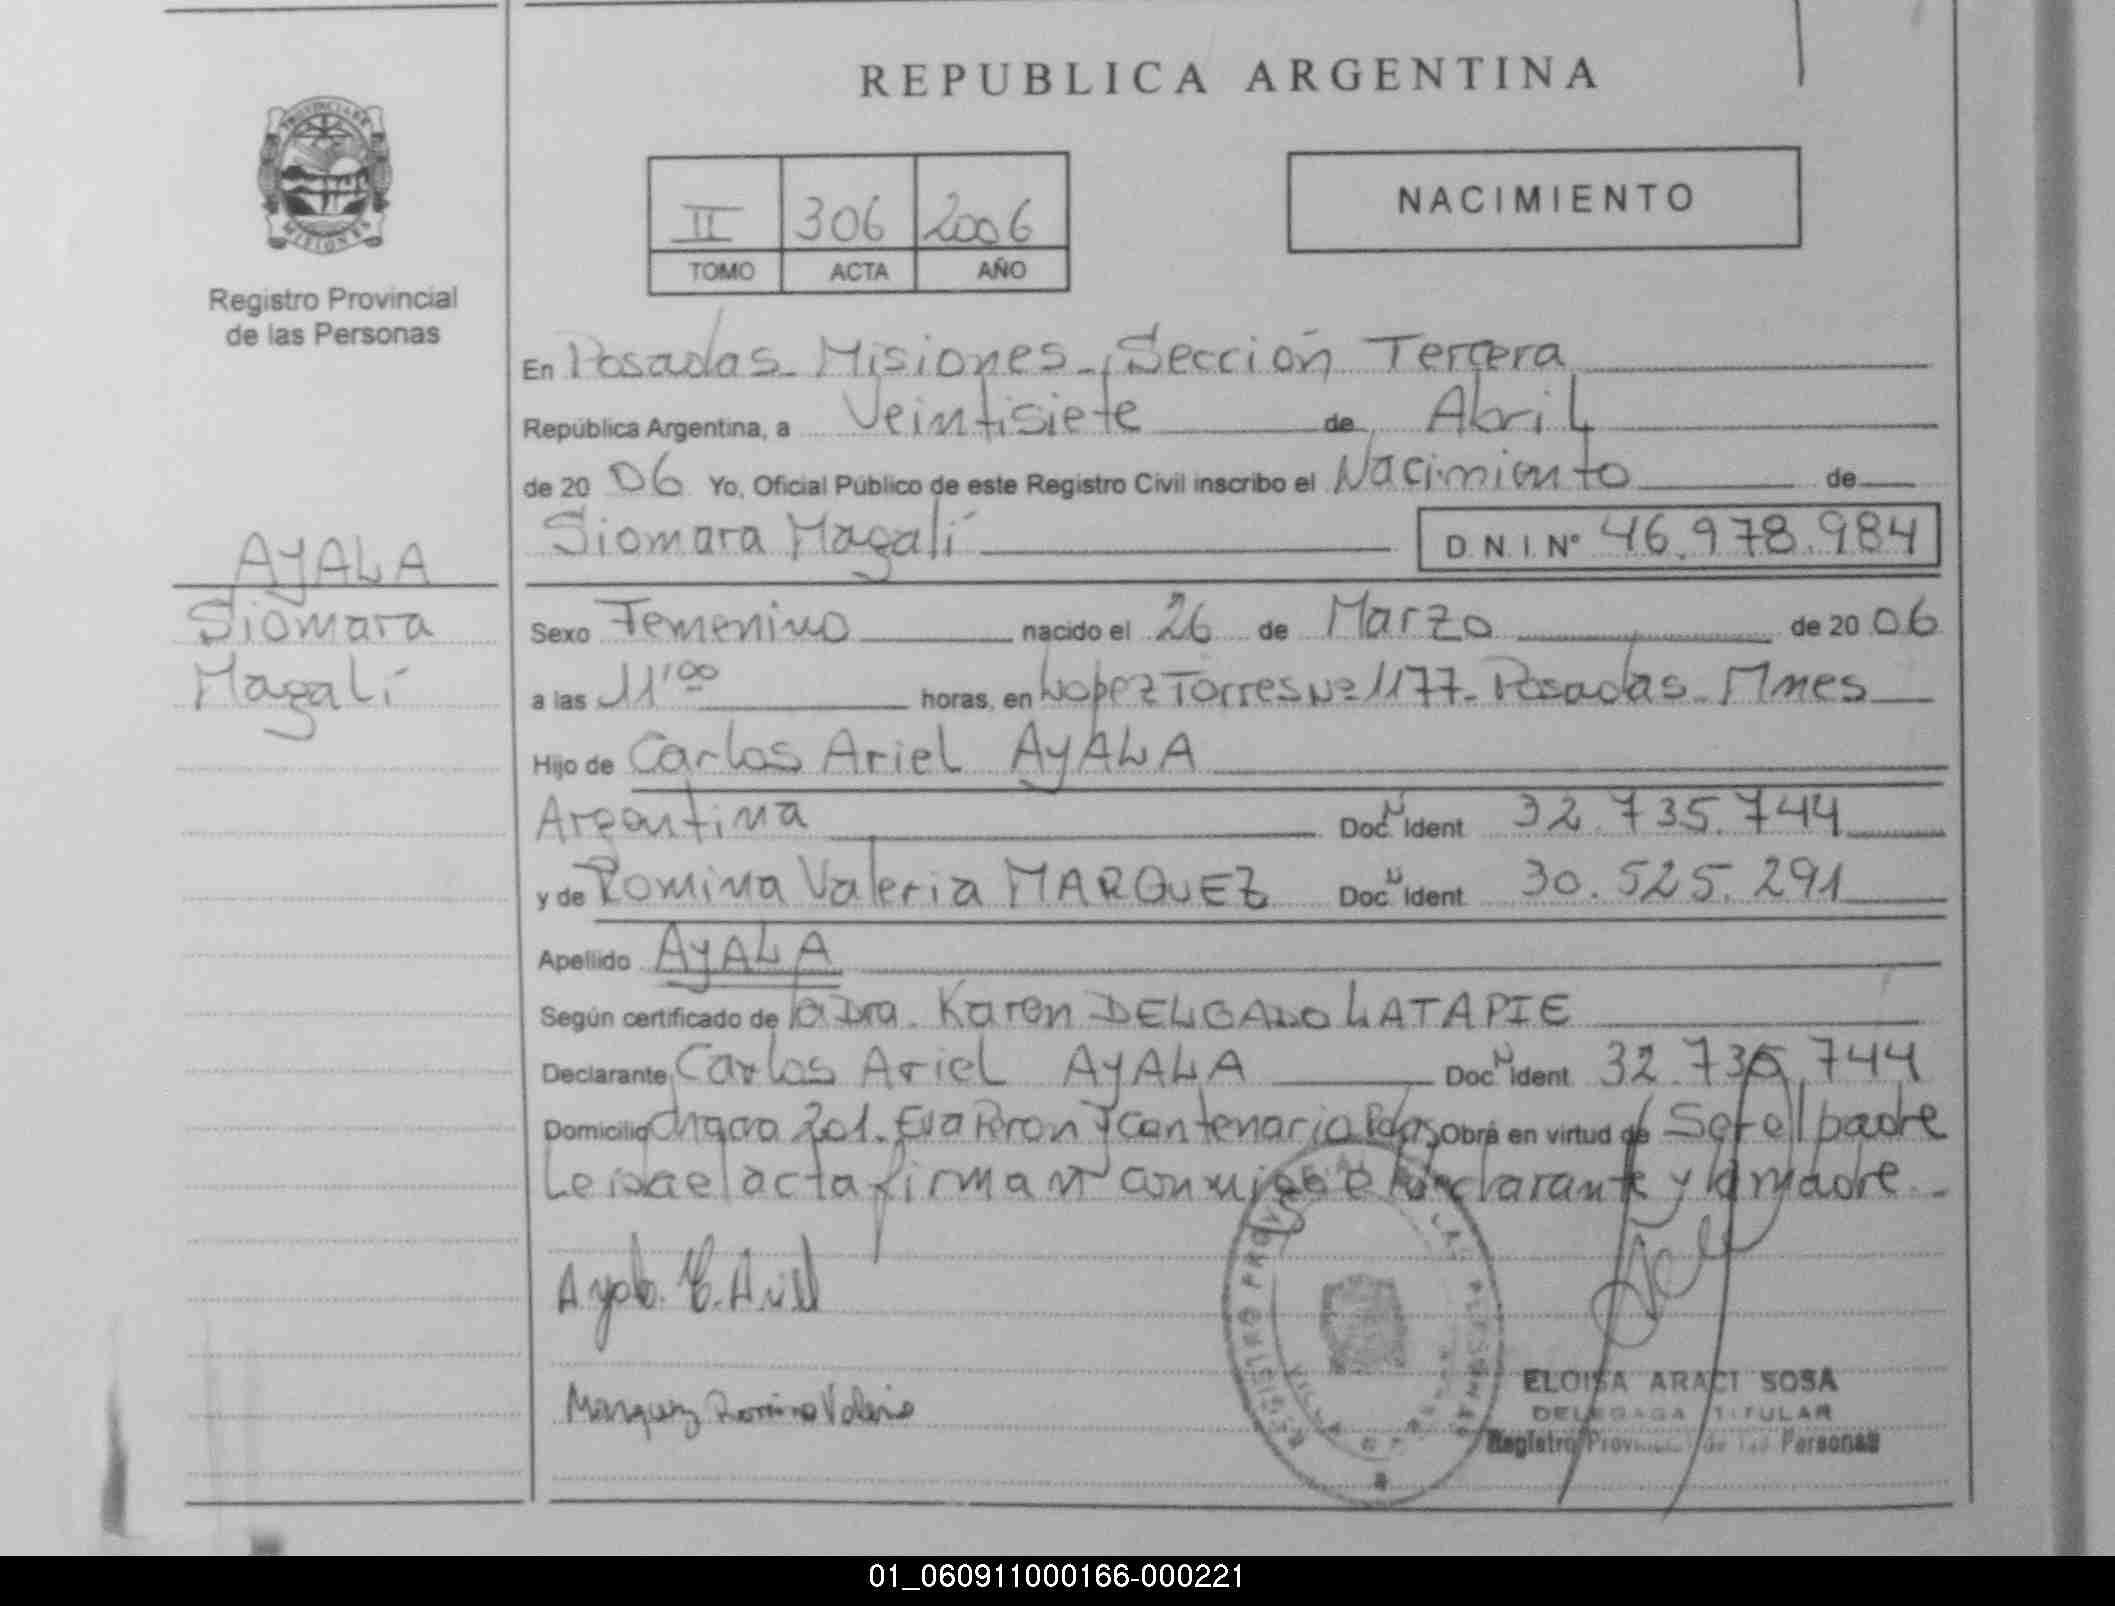 REPUBLICA ARGENTINA
PROVINCIA DE
MISIONES
Registro Provincial
de las Personas
II 306 2006
TOMO ACTA AÑO
NACIMIENTO
En Posadas - Misiones - Sección Tercera
República Argentina, a Veintisiete de Abril
de 20 06 Yo, Oficial Público de este Registro Civil inscribo el Nacimiento de
Siomara Magalí D.N.I. Nº 46.978.984
AyALA
Siomara
Magalí
Sexo Femenino nacido el 26 de Marzo de 20 06
a las 11'00 horas, en Lopez Torres Nº 1177 - Posadas - Mnes
Hijo de Carlos Ariel AyALA
Argentina Doc. N Ident 32.735.744
y de Romina Valeria MARQUEZ Doc. N Ident 30.525.291
Apellido AyALA
Según certificado de la Dra. Karen DELGADO LATAPIE
Declarante Carlos Ariel AyALA Doc. N Ident 32.735.744
Domicilio chacra 201. Eva Peron y Centenario Pdas Obra en virtud de Ser el padre
Leida el acta firman conmigo el declarante y la madre.-
Ayala C. Ariel
Marquez Romina Valeria
ELOISA ARACI SOSA
DELEGADA TITULAR
Registro Provincial de las Personas
01_060911000166-000221